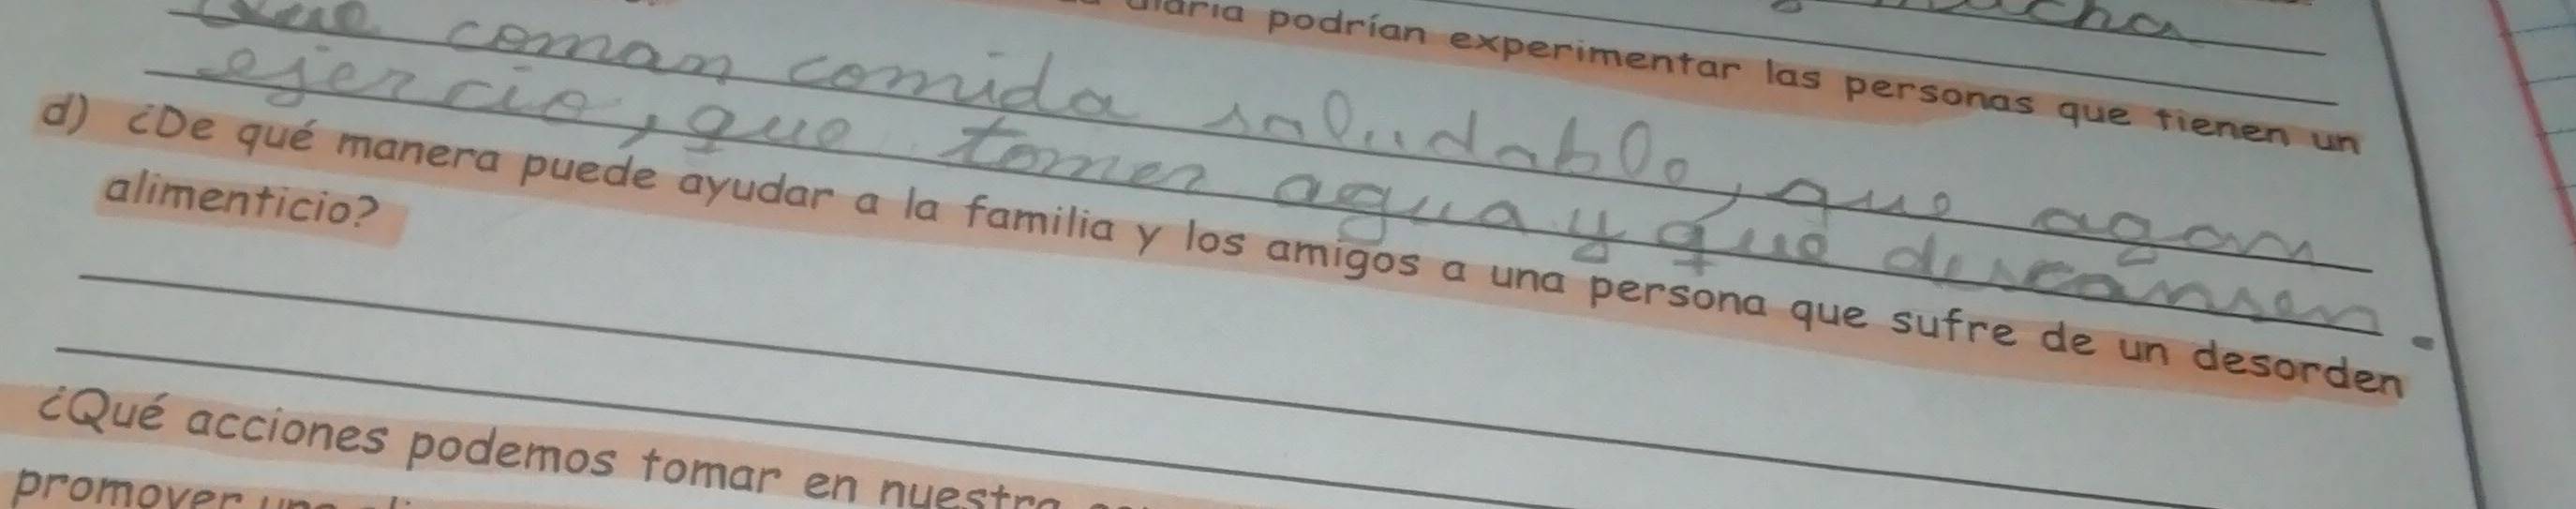 cha
diaria podrían experimentar las personas que tienen un
Que coman comida saludable, que agan
ejercio, que tomen agua y que descansen.
d) ¿De qué manera puede ayudar a la familia y los amigos a una persona que sufre de un desorden
alimenticio?
¿Qué acciones podemos tomar en nuestra
promover una